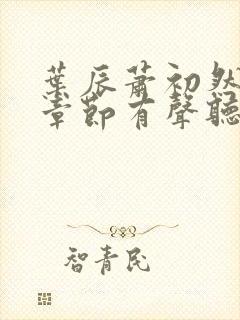 葉辰蕭初然
章節有聲聽
智青民